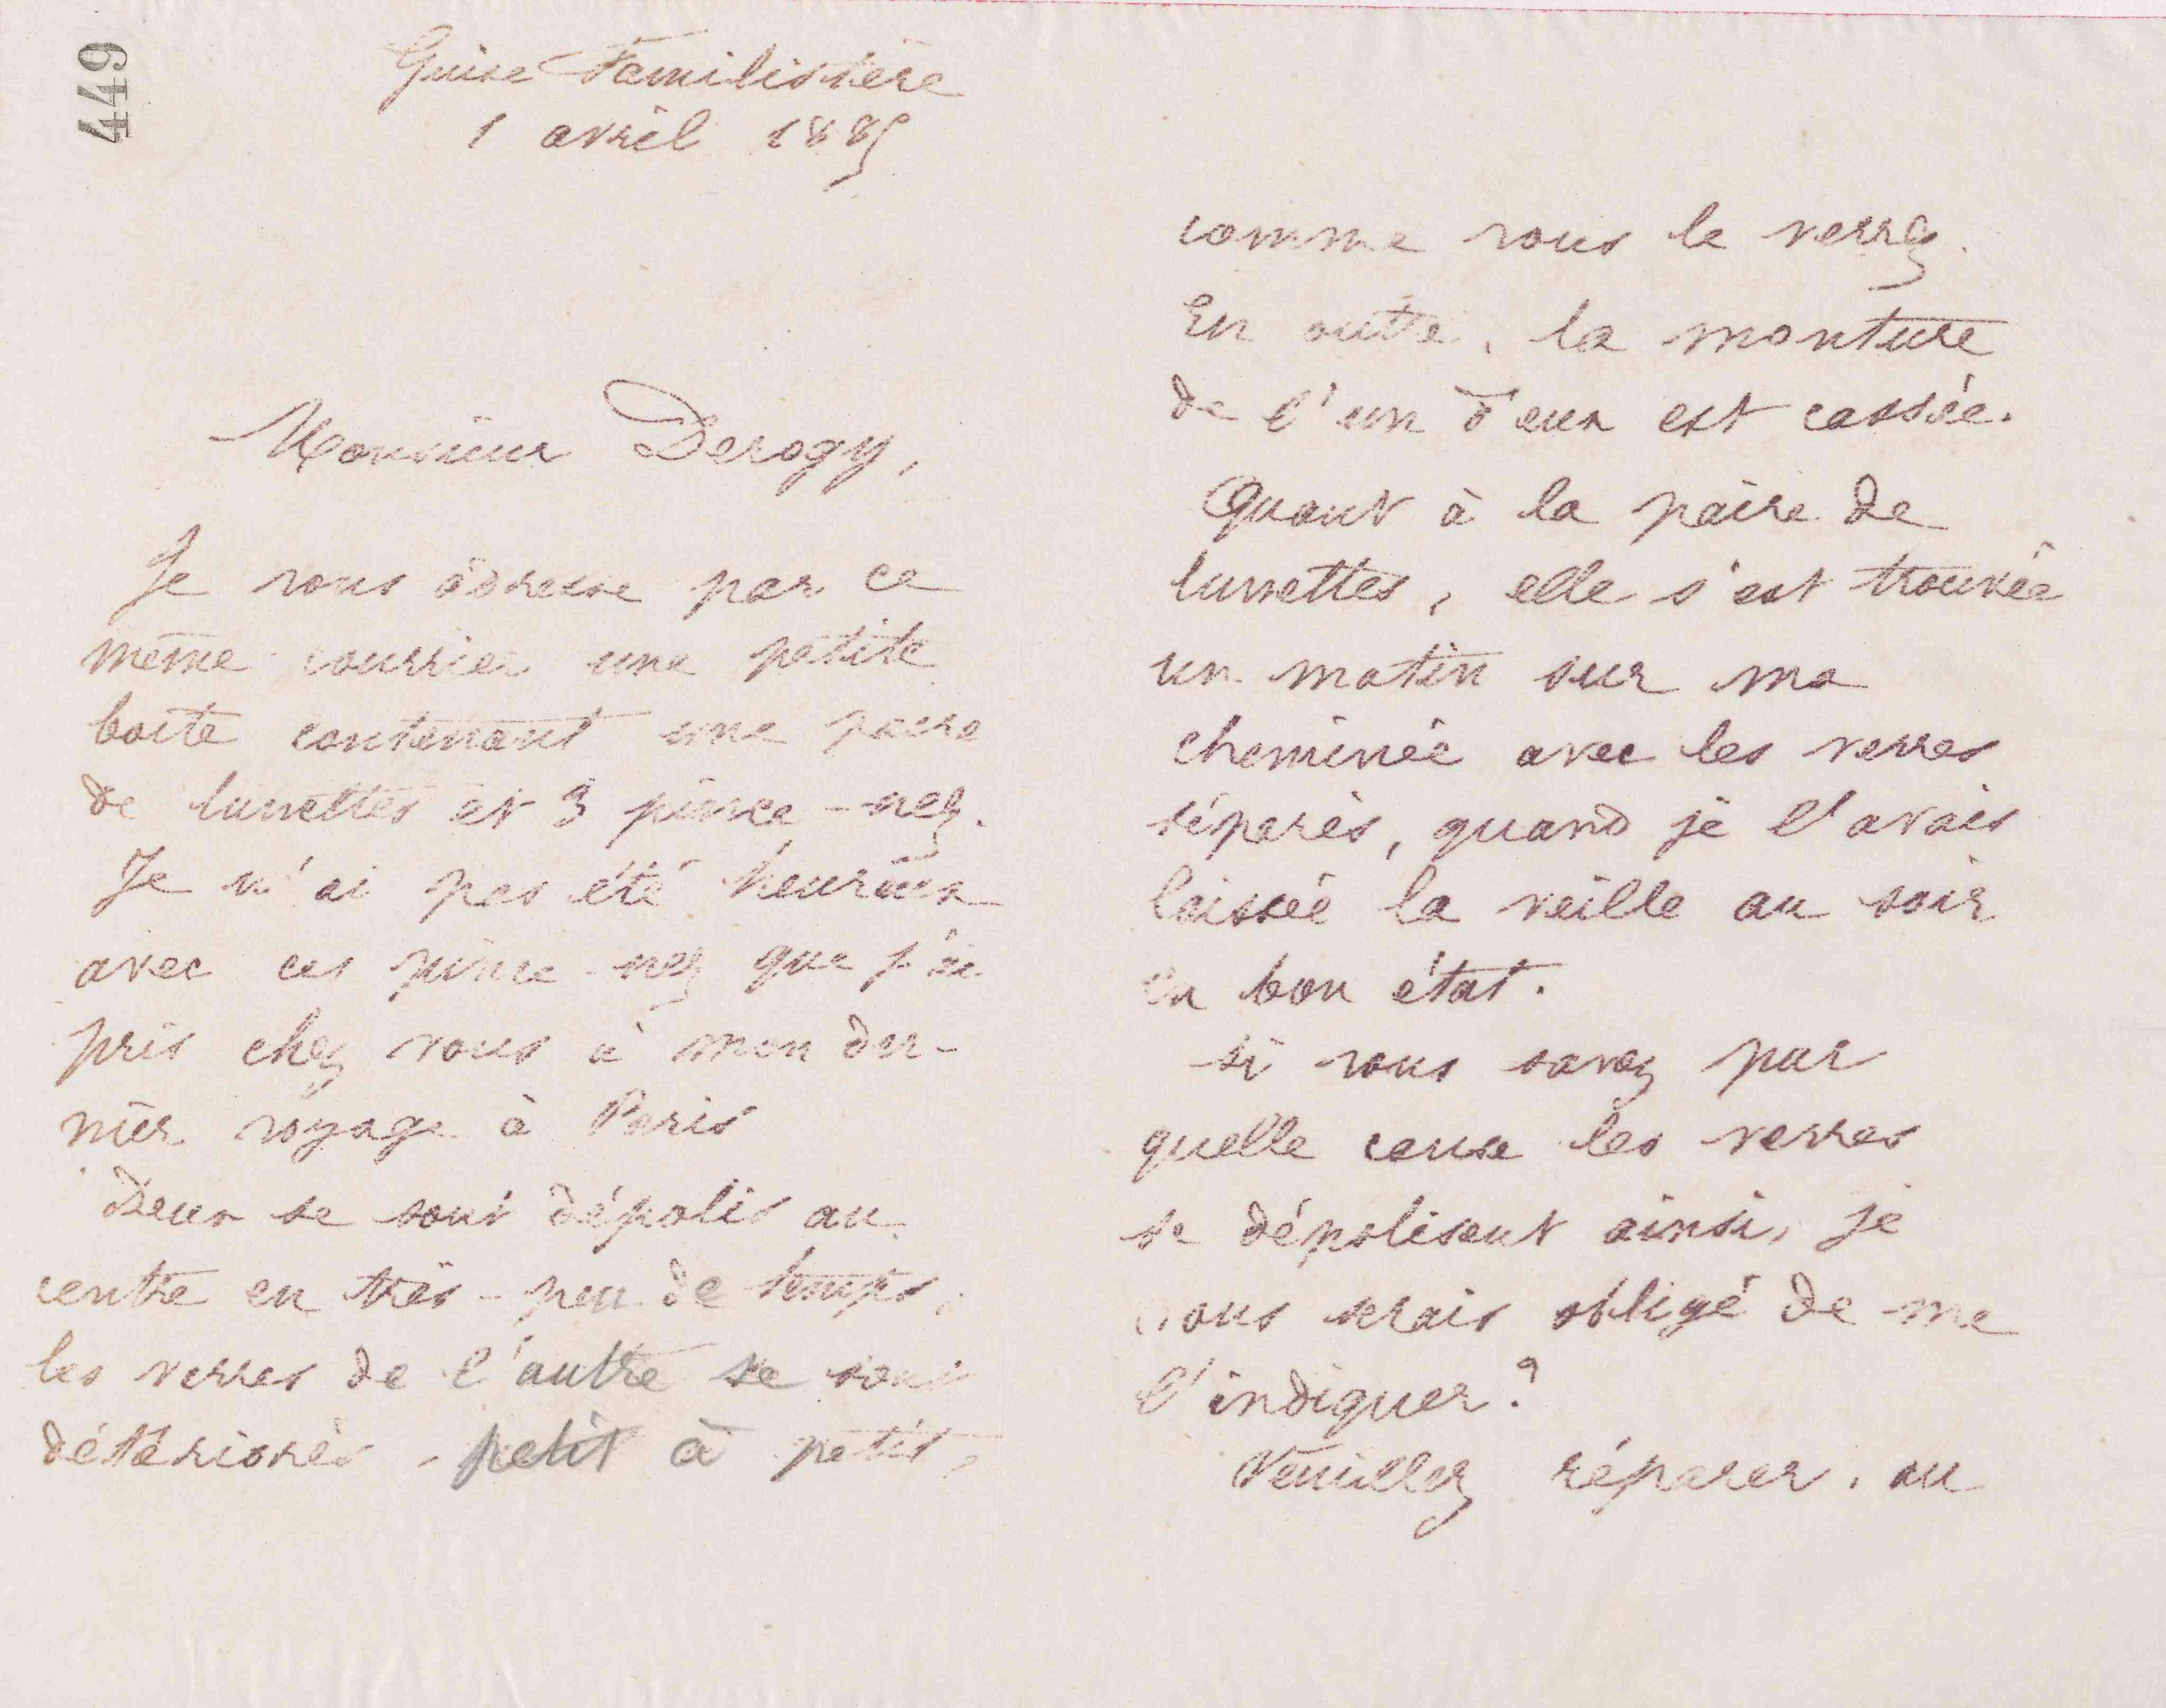 449
Guise Familistère
1 avril 1889
Monsieur Derogy,
Je vous adresse par ce
même courrier une petite
boîte contenant une paire
de lunettes et 3 pince-nez.
Je n'ai pas été heureux
avec ces pince-nez que j'ai
pris chez vous à mon der-
nier voyage à Paris
Deux se sont dépolis au
centre en très-peu de temps,
les verres de l'autre se sont
détériorés, petit à petit,
comme vous le verrez.
En outre, la monture
de l'un d'eux est cassée.
Quant à la paire de
lunettes, elle s'est trouvée
un matin sur ma
cheminée avec les verres
séparés, quand je l'avais
laissée la veille au soir
en bon état.
Si vous savez par
quelle cause les verres
se dépolisent ainsi, je
vous serais obligé de me
l'indiquer?
Veuillez réparer, ou